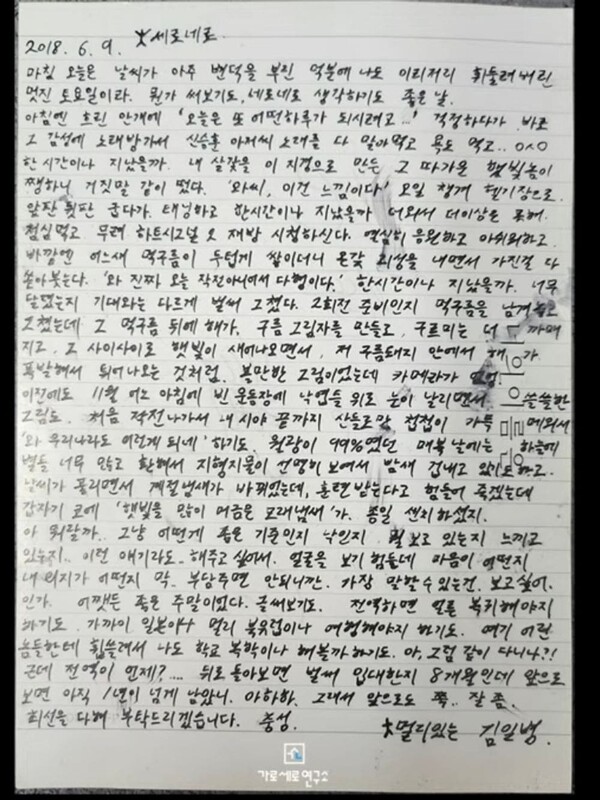 2018. 6. 9. ★세로네로
마침 오늘은 날씨가 아주 변덕을 부린 덕분에 나도 이리저리 휘둘려버린
멋진 토요일이라. 뭔가 써보기도, 세로네로 생각하기도 좋은 날.
아침엔 흐린 안개에 '오늘은 또 어떤하루가 되시려고...' 걱정하다가 바로
그 감성에 노래방가서 신승훈 아저씨 노래를 다 말아먹고 욕도 먹고.. ㅇㅅㅇ
한 시간이나 지났을까. 내 살갗을 이 지경으로 만든 그 따가운 햇빛놈이
쨍하니 거짓말 같이 떴다. '와씨, 이건 느낌이다' 오일 챙겨 헬기장으로.
앞판 뒷판 굽다가. 태닝하고 한시간이나 지났을까 더워서 더이상은 못해.
점심먹고 무려 하트시그널 2 재방 시청하신다. 열심히 응원하고 아쉬워하고.
바깥엔 어느새 먹구름이 두텁게 쌓이더니 온갖 괴성을 내면서 가진걸 다
쏟아붓는다. '와 진짜 오늘 작전아니어서 다행이다.' 한시간이나 지났을까. 너무
달랬는지 기대와는 다르게 벌써 그쳤다. 2회전 준비인지 먹구름을 남겨놓고
그쳤는데 그 먹구름 뒤에 해가. 구름 그림자를 만들고, 구르미는 더 까매
지고. 그 사이사이로 햇빛이 새어나오면서, 저 구름돼지 안에서 해가
폭발해서 튀어나오는 것처럼. 볼만한 그림이었는데 카메라가
이전에도 11월 어느 아침에 빈 운동장에 낙엽들 위로 눈이 날리면서 쓸쓸한
그림도. 처음 작전나가서 내 시야 끝까지 산들로만 첩첩이 가득 메워서
'와 우리나라도 이런게 되네' 하기도. 월광이 99%였던 매복 날에는 하늘에
별들 너무 많고 환해서 지형지물이 선명히 보여서 밤새 겁내고 있기도 하고.
날씨가 풀리면서 계절냄새가 바뀌었는데, 훈련 받는다고 힘들어 죽겠는데
갑자기 코에 '햇빛을 많이 머금은 모래냄새'가. 종일 센치하셨지.
아 뭐랄까.. 그냥 어떻게 좋은 기준인지 낙인지 뭘 보고 있는지 느끼고
있는지.. 이런 얘기라도.. 해주고 싶어서. 얼굴을 보기 힘든데 마음이 어떤지
내 의지가 어떤지 막.. 부담주면 안되니깐. 가장 말할수 있는건, 보고싶어.
인가. 어쨌든 좋은 주말이었다. 글써보기도. 전역하면 얼른 복귀해야지
하기도. 가까이 일본이나 멀리 북유럽이나 여행해야지 하기도. 여기 어린
놈들한테 휩쓸려서 나도 학교 복학이나 해볼까 하기도. 아, 그럼 같이 다니나?!
근데 전역이 언제?.... 뒤로 돌아보면 벌써 입대한지 8개월인데 앞으로
보면 아직 1년이 넘게 남았니. 아하하. 그래서 앞으로도 쪽.. 잘 좀.
최선을 다해 부탁드리겠습니다. 충성.
★멀리있는 김일병.
가로세로연구소